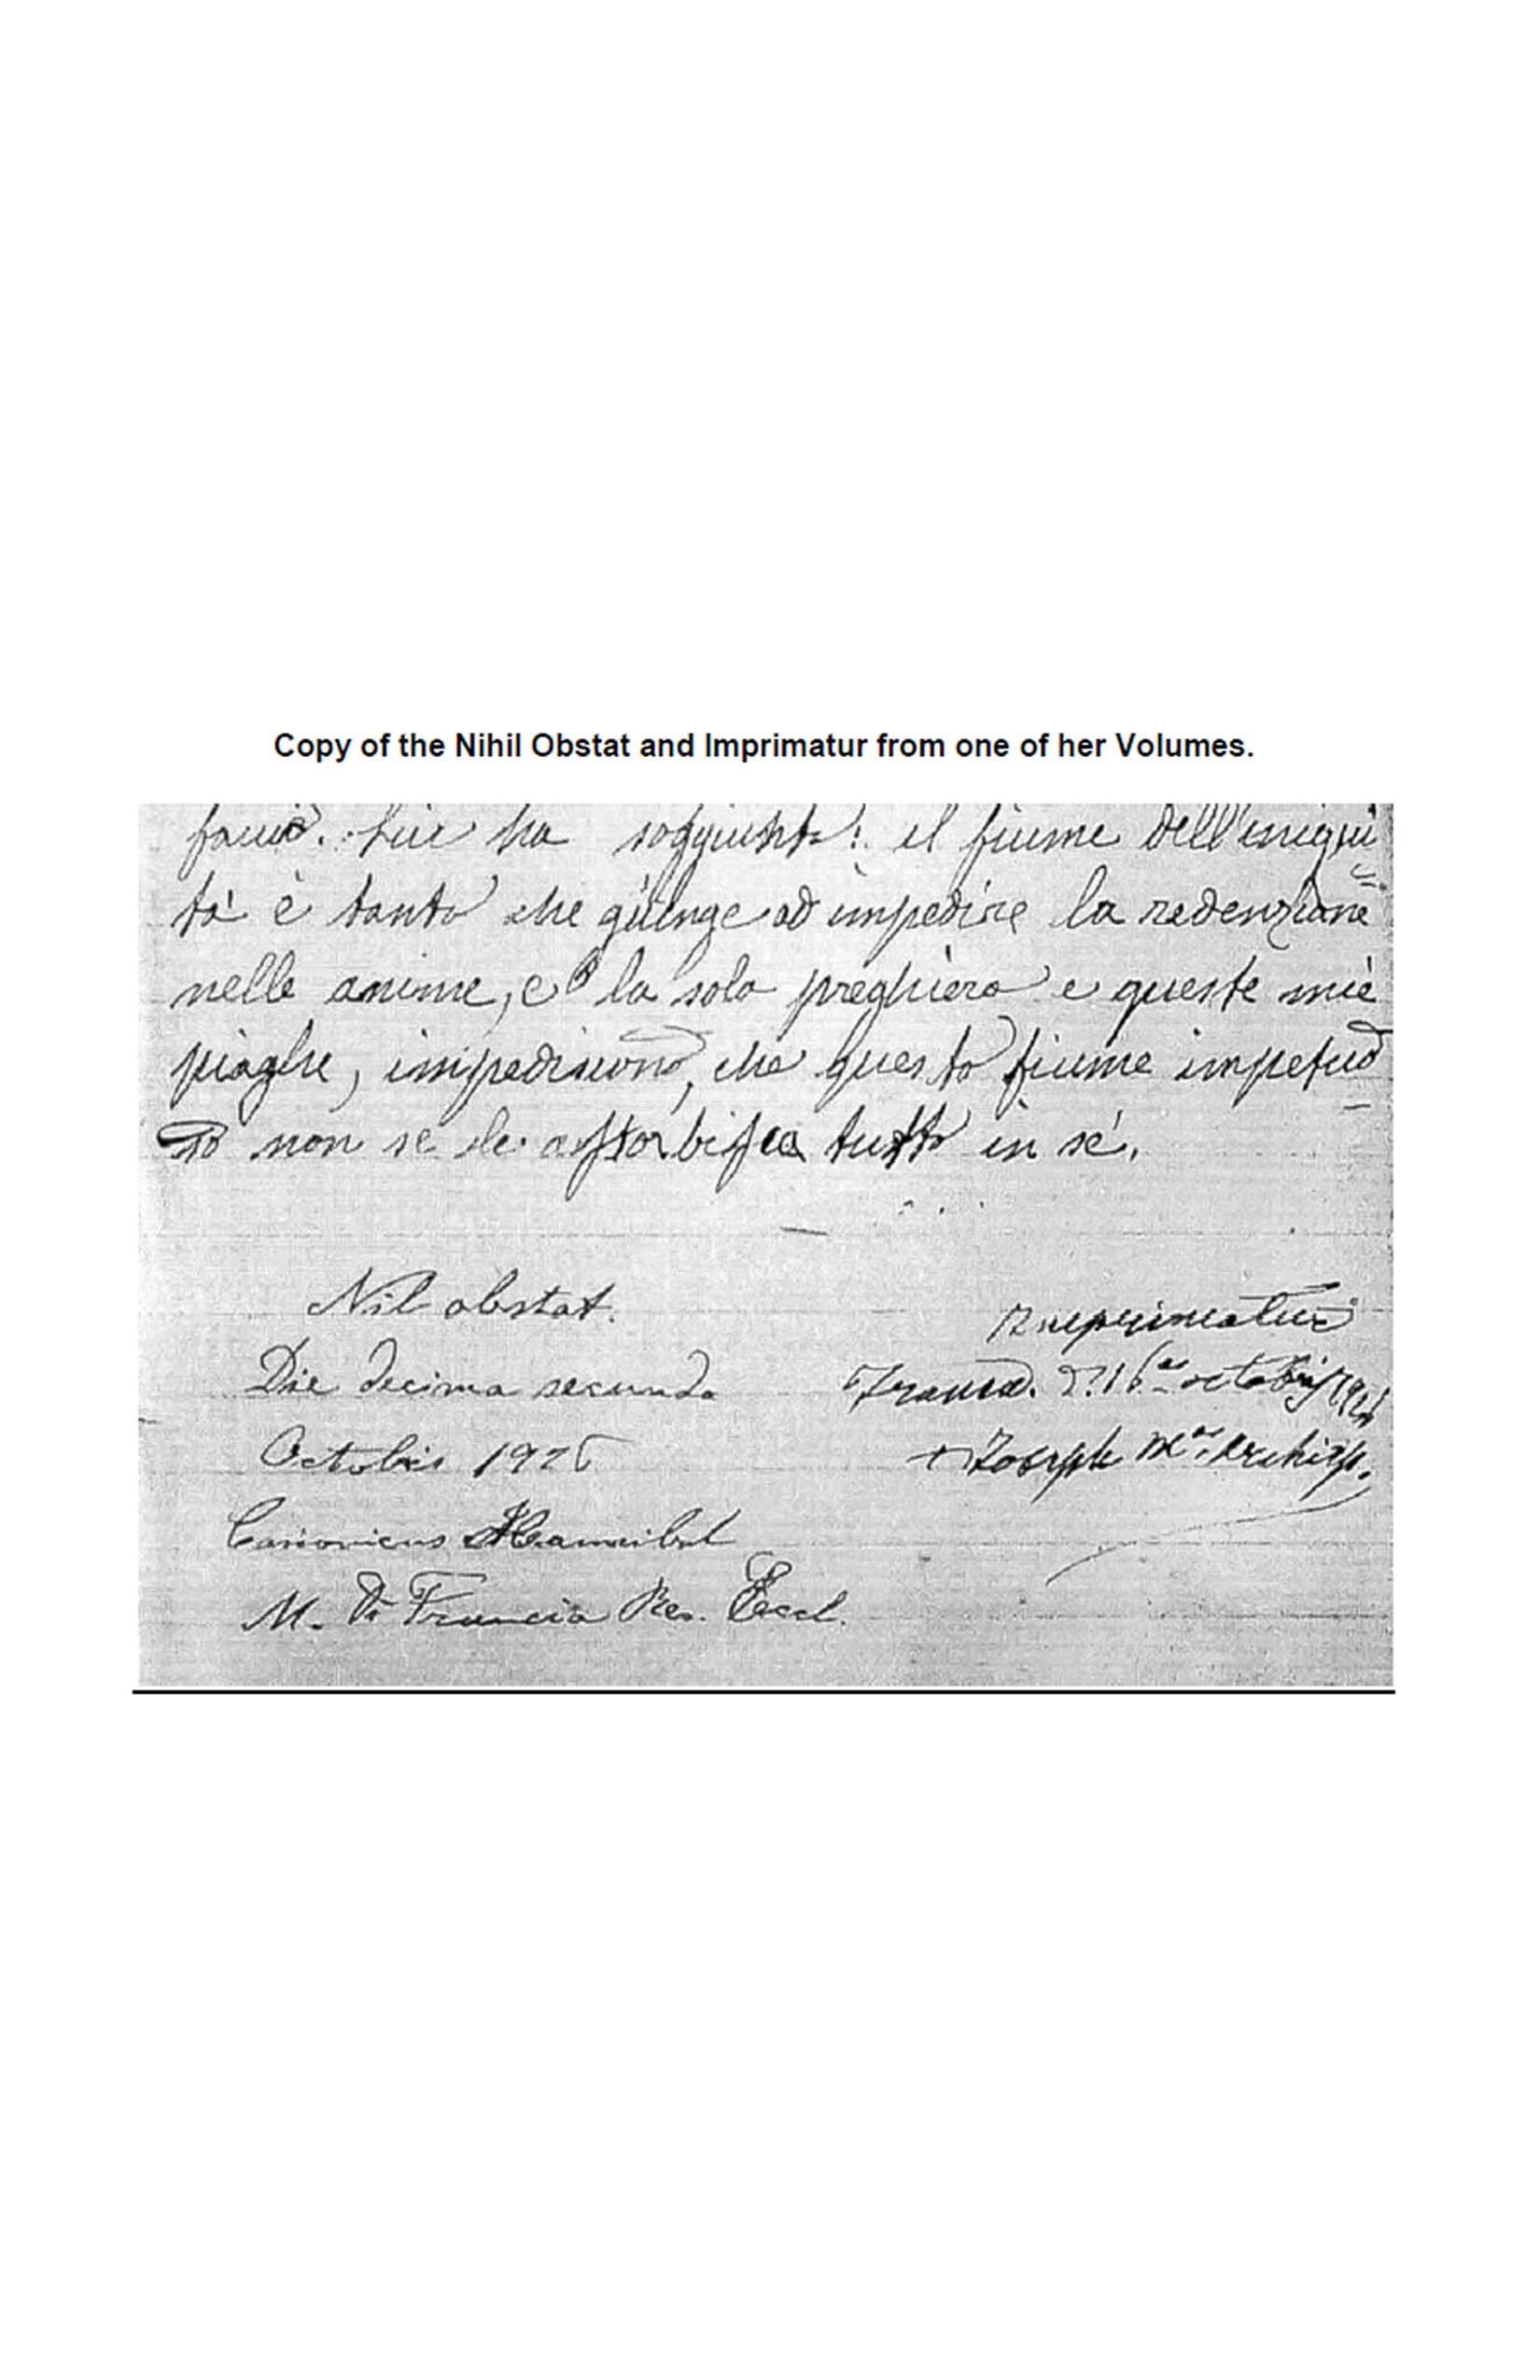 Copy of the Nihil Obstat and Imprimatur from one of her Volumes.
ha soggiunto: il fiume dell'iniqui
tà è tanto che giunge ad impedire la redenzione
nelle anime, e la sola preghiera e queste mie
piaghe, impediscono, che questo fiume impetuo
so non se le assorbisca tutto in sé.
Nil obstat.
Imprimatur
Die decima secunda
octobris
Octobris 192
+ Joseph M. Archiep.
Canonicus Hannibal
M. Di Francia Rev. Eccl.